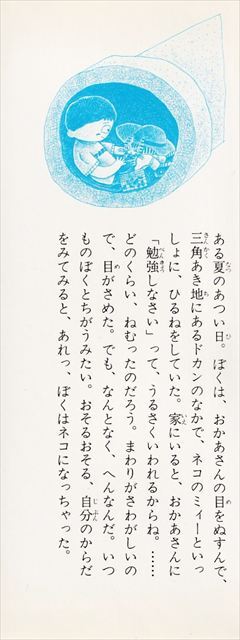 ある夏のあつい日。ぼくは、おかあさんの目をぬすんで、
三角あき地にあるドカンのなかで、ネコのミィーといっ
しょに、ひるねをしていた。家にいると、おかあさんに
「勉強しなさい」って、うるさくいわれるからね。……
どのくらい、ねむったのだろう。まわりがさわがしいの
で、目がさめた。でも、なんとなく、へんなんだ。いつ
ものぼくとちがうみたい。おそるおそる、自分のからだ
をみてみると、あれっ、ぼくはネコになっちゃった。